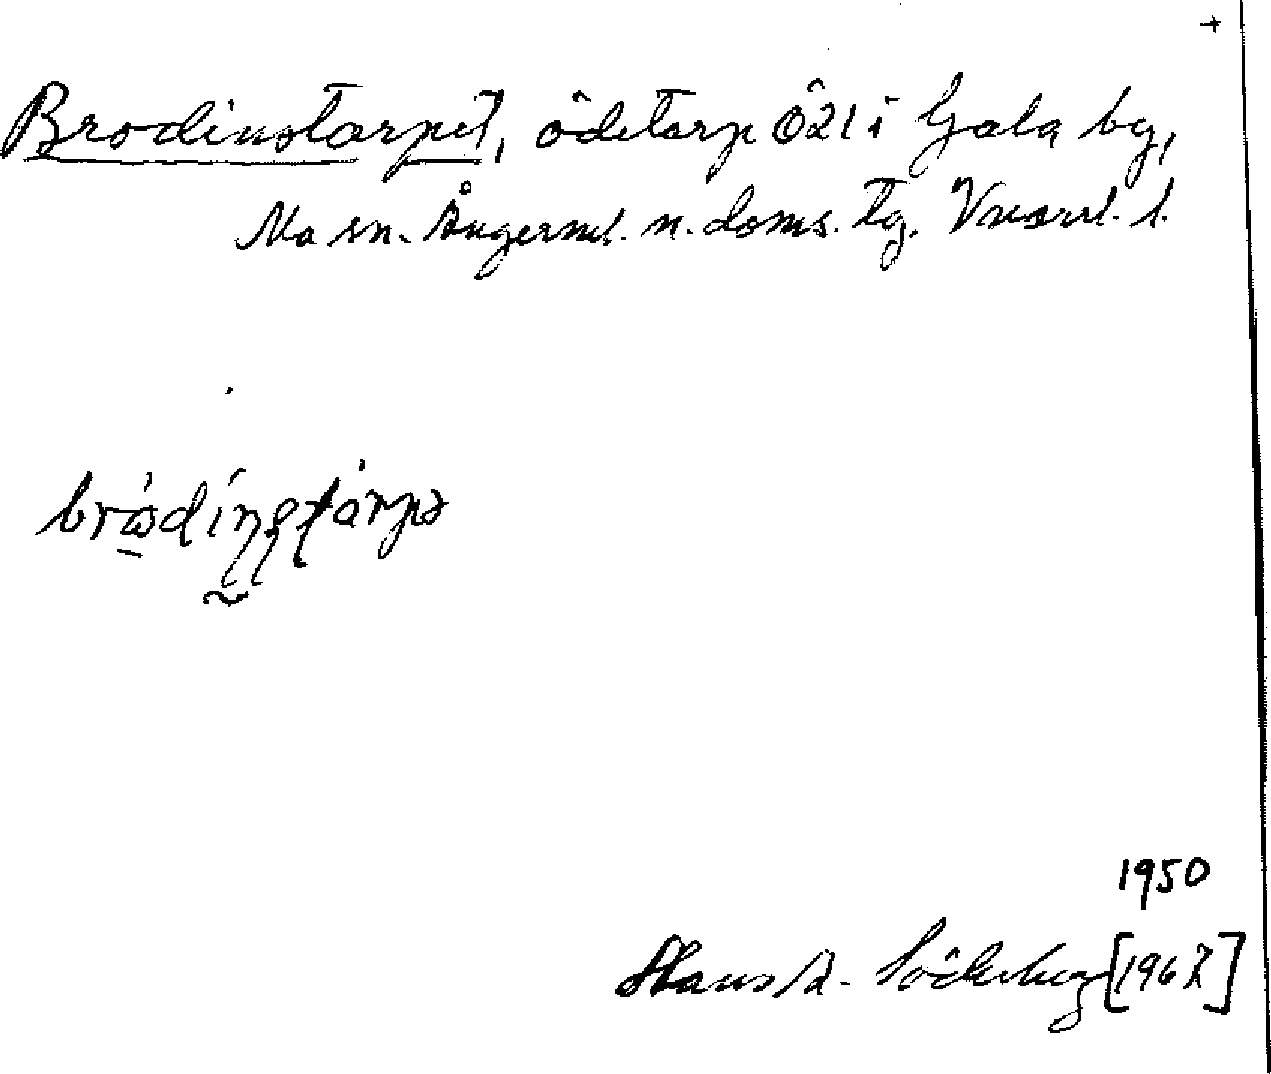 +
Brodinstorpet, ödetorp Ö21 i Gala by,
Mo sn. Ångerml. n. doms. tg. Vnorrl. l.
1950
Hans A. Söderberg [1967]